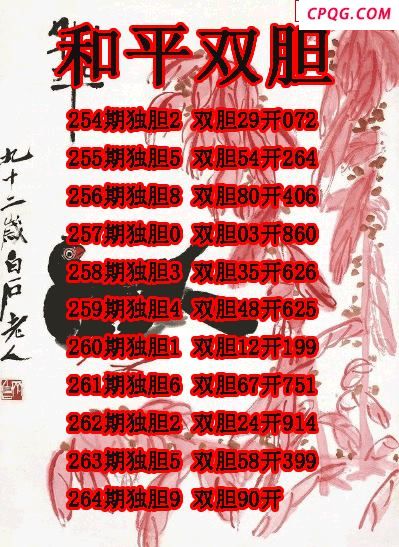 CPQG.COM
和平双胆
254期独胆2 双胆29开072
255期独胆5 双胆54开264
256期独胆8 双胆80开406
257期独胆0 双胆03开860
258期独胆3 双胆35开626
259期独胆4 双胆48开625
260期独胆1 双胆12开199
261期独胆6 双胆67开751
262期独胆2 双胆24开914
263期独胆5 双胆58开399
264期独胆9 双胆90开
九十二歲白石老人